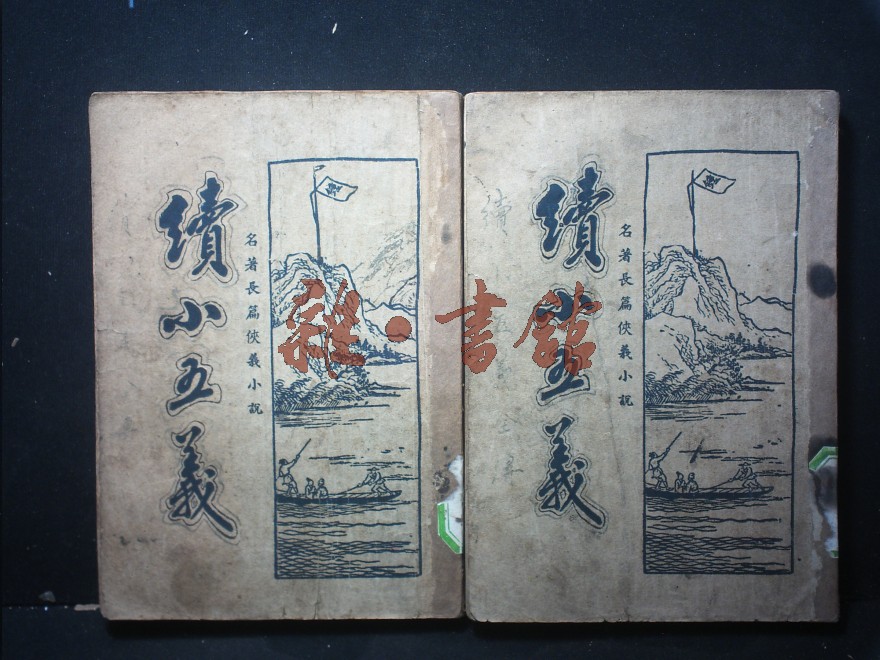 續小五義
名著長篇俠義小說
續小五義
名著長篇俠義小說
雜·書館